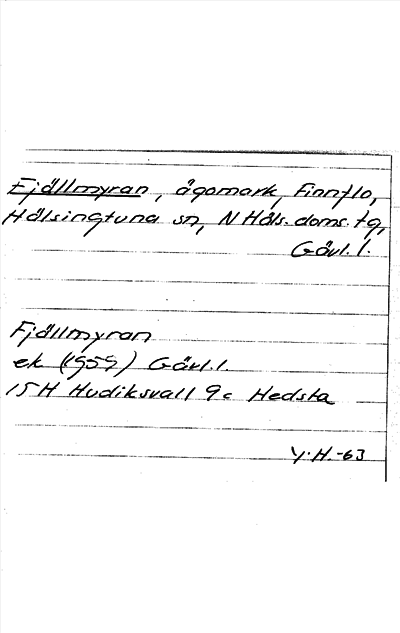 Fjällmyran, ägomark, Finnflo,
Hälsingtuna sn, N Häls. doms. tg,
Gävl. l.
Fjällmyran
ek (1959) Gävl. l.
15H Hudiksvall 9c Hedsta
Y.H.-63